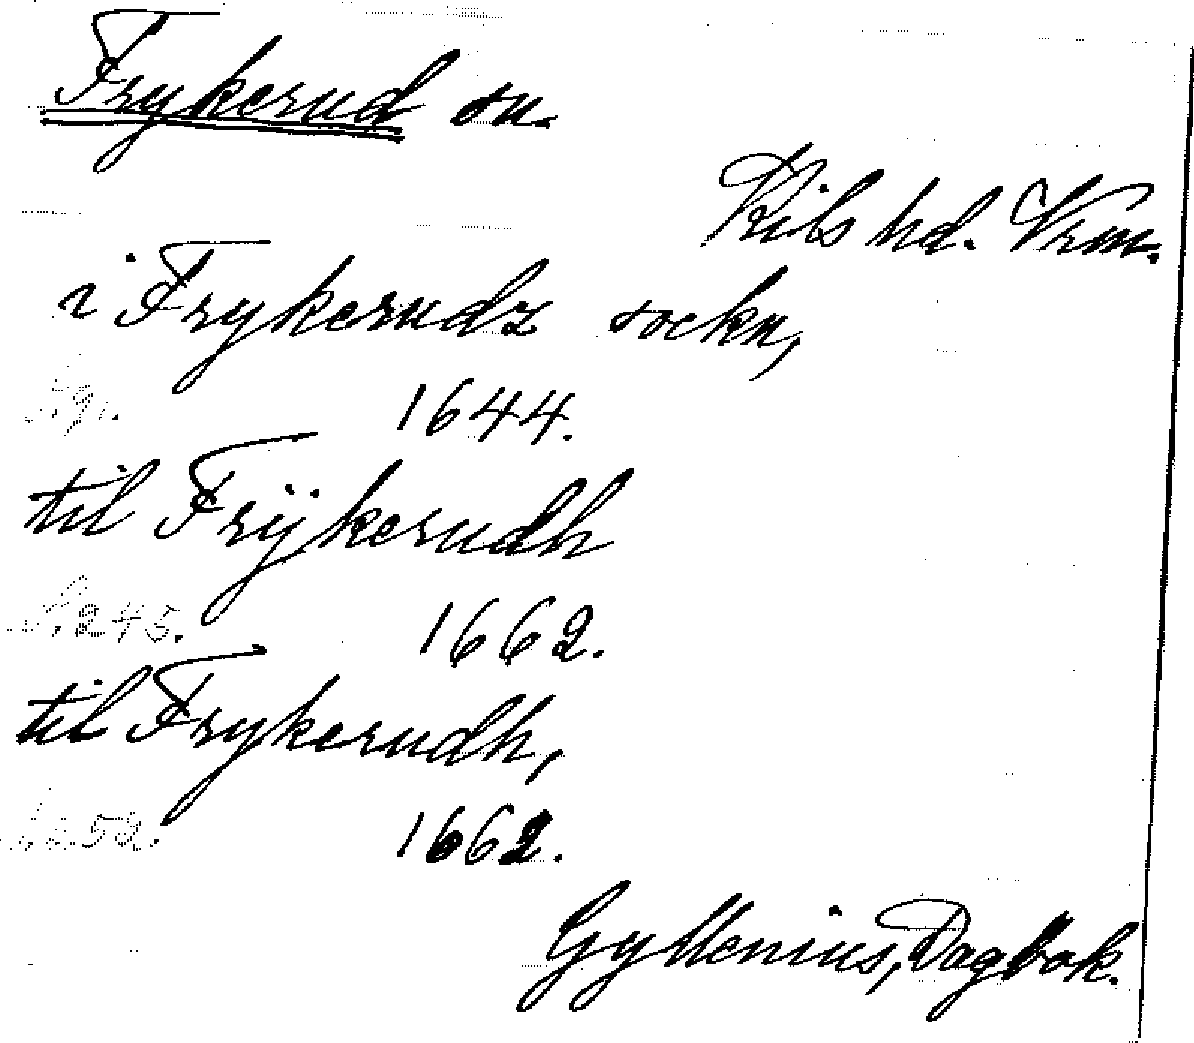 Frykerud sn.
Kils hd. Vrm.
i Frykerudz sockn,
S. 91. 1644.
til Frÿkerudh
S. 245. 1662.
til Frykerudh,
S. 252. 1662.
Gyllenius, Dagbok.